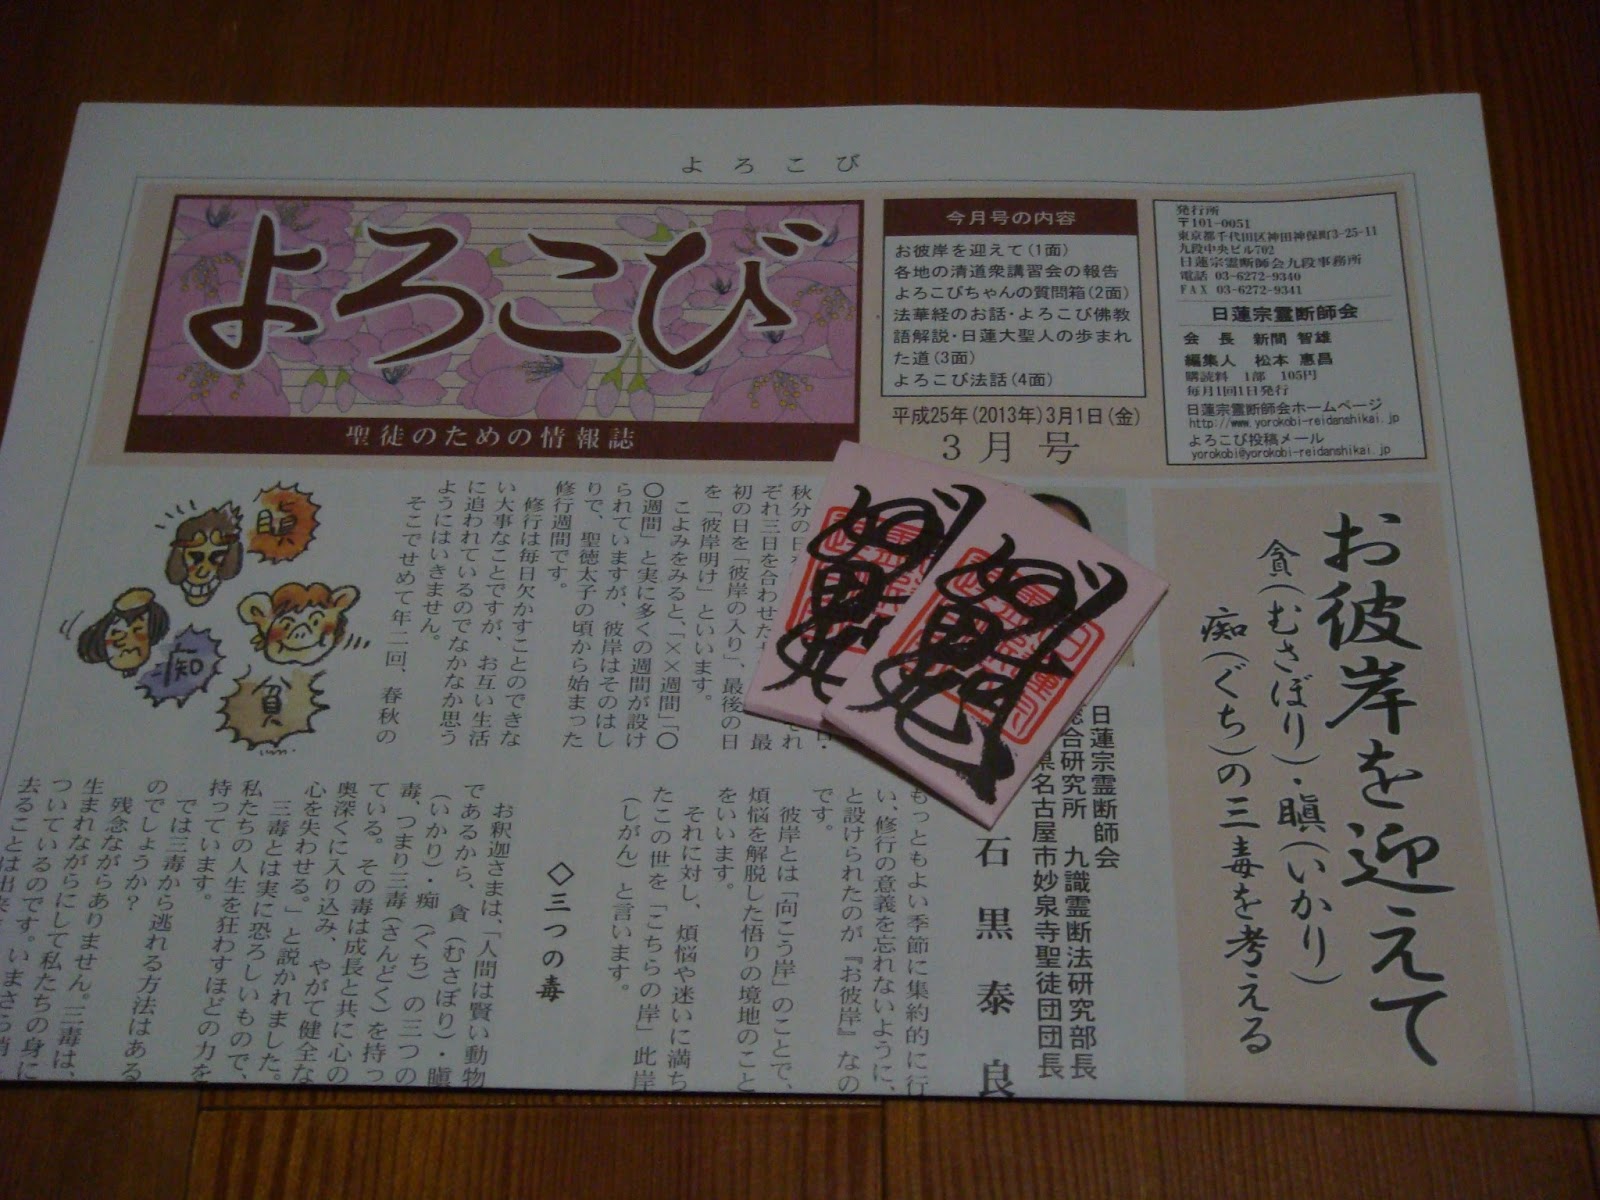 よろこび
よろこび
聖徒のための情報誌
今月号の内容
お彼岸を迎えて(1面)
各地の清道衆講習会の報告
よろこびちゃんの質問箱(2面)
法華経のお話・よろこび佛教
語解説・日蓮大聖人の歩まれ
た道(3面)
よろこび法話(4面)
平成25年(2013年)3月1日(金)
3月号
発行所
〒101-0051
東京都千代田区神田神保町3-25-11
九段中央ビル702
日蓮宗霊断師会九段事務所
電話 03-6272-9340
FAX 03-6272-9341
日蓮宗霊断師会
会 長 新間 智雄
編集人 松本 恵昌
購読料 1部 105円
毎月1回1日発行
日蓮宗霊断師会ホームページ
http://www.yorokobi-reidanshikai.jp
よろこび投稿メール
yorokobi@yorokobi-reidanshikai.jp
お彼岸を迎えて
貪(むさぼり)・瞋(いかり)
痴(ぐち)の三毒を考える
日蓮宗霊断師会
総合研究所 九識霊断法研究部長
県名古屋市妙泉寺聖徒団団長
石黒泰良
秋分の日
ぞれ三日を合わせた
初の日を「彼岸の入り」、最後の日
を「彼岸明け」といいます。
こよみをみると、「××週間」「〇
〇週間」と実に多くの週間が設け
られていますが、彼岸はそのはし
りで、聖徳太子の頃から始まった
修行週間です。
修行は毎日欠かすことのできな
い大事なことですが、お互い生活
に追われているのでなかなか思う
ようにはいきません。
そこでせめて年二回、春秋の
瞋
痴
貪
もっともよい季節に集約的に行
い、修行の意義を忘れないように、
と設けられたのが『お彼岸』なの
です。
彼岸とは「向こう岸」のことで、
煩悩を解脱した悟りの境地のこと
をいいます。
それに対し、煩悩や迷いに満ち
たこの世を「こちらの岸」此岸
(しがん)と言います。
◇三つの毒
お釈迦さまは、「人間は賢い動物
であるから、貪(むさぼり)・瞋
(いかり)・痴(ぐち)の三つの
毒、つまり三毒(さんどく)を持っ
ている。その毒は成長と共に心の
奥深くに入り込み、やがて健全な
心を失わせる。」と説かれました。
三毒とは実に恐ろしいもので、
私たちの人生を狂わすほどの力を
持っています。
では三毒から逃れる方法はある
のでしょうか?
残念ながらありません。三毒は、
生まれながらにして私たちの身に
ついているのです。いまさら消
去ることは出来